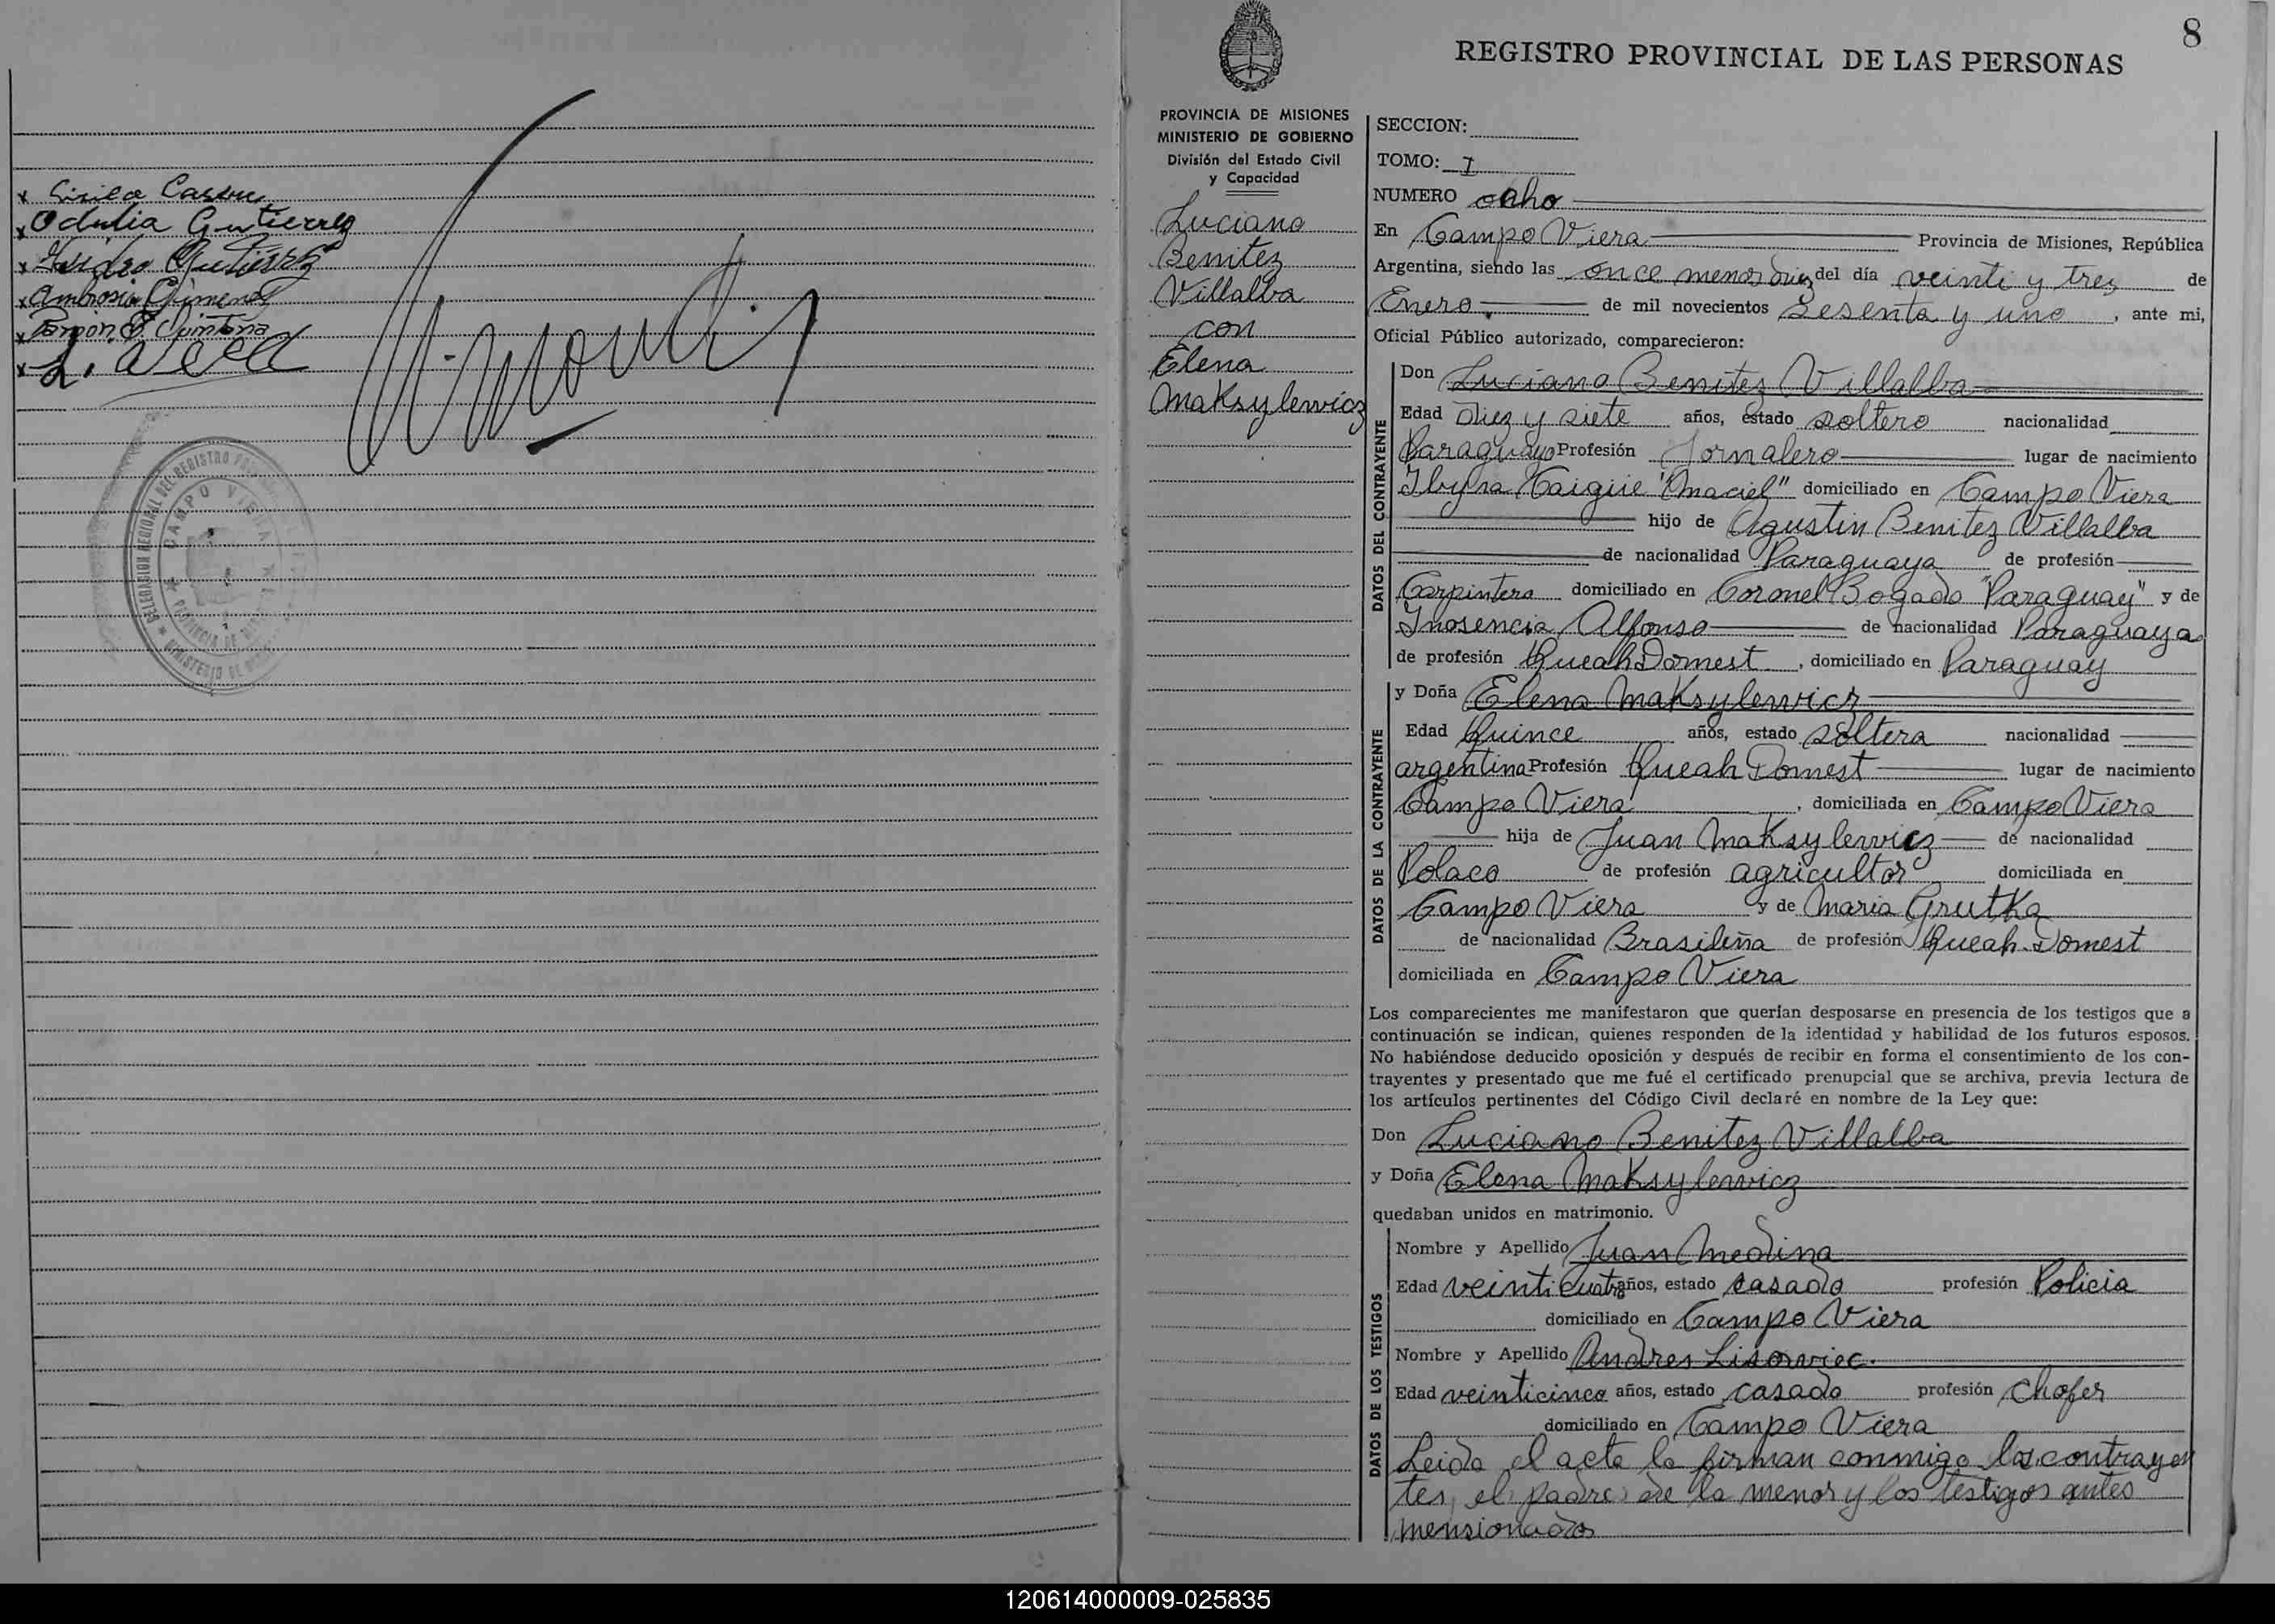 x Cirila
x Odulia Gutierrez
x Isidro Gutierrez
x Ambrosia Gimenez
x Ramon E. Quintana
x
DELEGACION REGIONAL DEL REGISTRO
CAMPO VIERA
PROVINCIA DE
MINISTERIO DE
8
REGISTRO PROVINCIAL DE LAS PERSONAS
PROVINCIA DE MISIONES
MINISTERIO DE GOBIERNO
División del Estado Civil
y Capacidad
Luciano
Benitez
Villalba
con
Elena
Maksylewicz
SECCION:
TOMO: I
NUMERO ocho
En Campo Viera Provincia de Misiones, República
Argentina, siendo las once menos diez del día veinti y tres de
Enero de mil novecientos Sesenta y uno, ante mi,
Oficial Público autorizado, comparecieron:
DATOS DEL CONTRAYENTE
Don Luciano Benitez Villalba
Edad Diez y siete años, estado soltero nacionalidad
Paraguayo Profesión Jornalero lugar de nacimiento
Ibyra Caigüe "Maciel" domiciliado en Campo Viera
hijo de Agustin Benitez Villalba
de nacionalidad Paraguaya de profesión
Carpintero domiciliado en Coronel Bogado "Paraguay" y de
Inosencia Alfonso de nacionalidad Paraguaya
de profesión Queah Domest, domiciliado en Paraguay
DATOS DE LA CONTRAYENTE
y Doña Elena Maksylewicz
Edad Quince años, estado soltera nacionalidad
argentina Profesión Queah Domest lugar de nacimiento
Campo Viera, domiciliada en Campo Viera
hija de Juan Maksylewicz de nacionalidad
Polaco de profesión agricultor domiciliada en
Campo Viera y de Maria Grutka
de nacionalidad Brasileña de profesión Queah. Domest
domiciliada en Campo Viera
Los comparecientes me manifestaron que querían desposarse en presencia de los testigos que a
continuación se indican, quienes responden de la identidad y habilidad de los futuros esposos.
No habiéndose deducido oposición y después de recibir en forma el consentimiento de los con-
trayentes y presentado que me fué el certificado prenupcial que se archiva, previa lectura de
los artículos pertinentes del Código Civil declaré en nombre de la Ley que:
Don Luciano Benitez Villalba
y Doña Elena Maksylewicz
quedaban unidos en matrimonio.
DATOS DE LOS TESTIGOS
Nombre y Apellido Juan Medina
Edad veinticuatro años, estado casado profesión Policia
domiciliado en Campo Viera
Nombre y Apellido Andres Lisowiec.
Edad veinticinco años, estado casado profesión chofer
domiciliado en Campo Viera
Leida el acta la firman conmigo los contrayen
tes, el padre de la menor y los testigos antes
mensionados
120614000009-025835